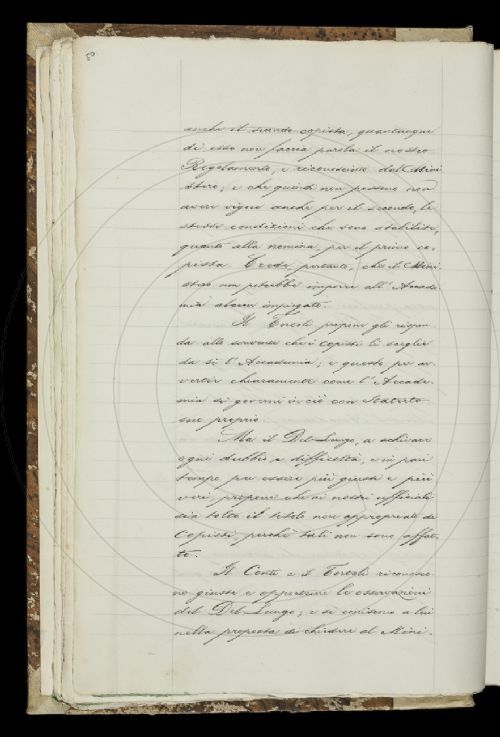 anche il secondo copista, quantunque
di esso non faccia parola il nostro
Regolamento, è riconosciuto dal Mini
stero; e che quindi non possono non
aver vigore anche per il secondo, le
stesse condizioni che sono stabilite,
quanto alla nomina, per il primo co-
pista. Crede, pertanto, che il Mini
stero non potrebbe imporre all'Accade-
mia alcun impiegato.
Il Tortoli propone gli rispon
da alla sommessa che i copisti li sceglie
da sè l'Accademia; e questo per av-
vertir chiaramente come l'Accade-
mia si governi in ciò con Statuto
suo proprio.
Ma il Del Lungo, a schivare
ogni dubbio e difficoltà, e in pari
tempo per essere più giusti e più
veri, propone che ai nostri ufficiali
sia tolto il titolo non appropriato di
Copisti perchè tali non sono affat-
to.
Il Conti e il Tortoli ricono
no giuste e opportune le osservazioni
del Del Lungo; e si uniscono a lui
nella proposta di chiedere al Mini-